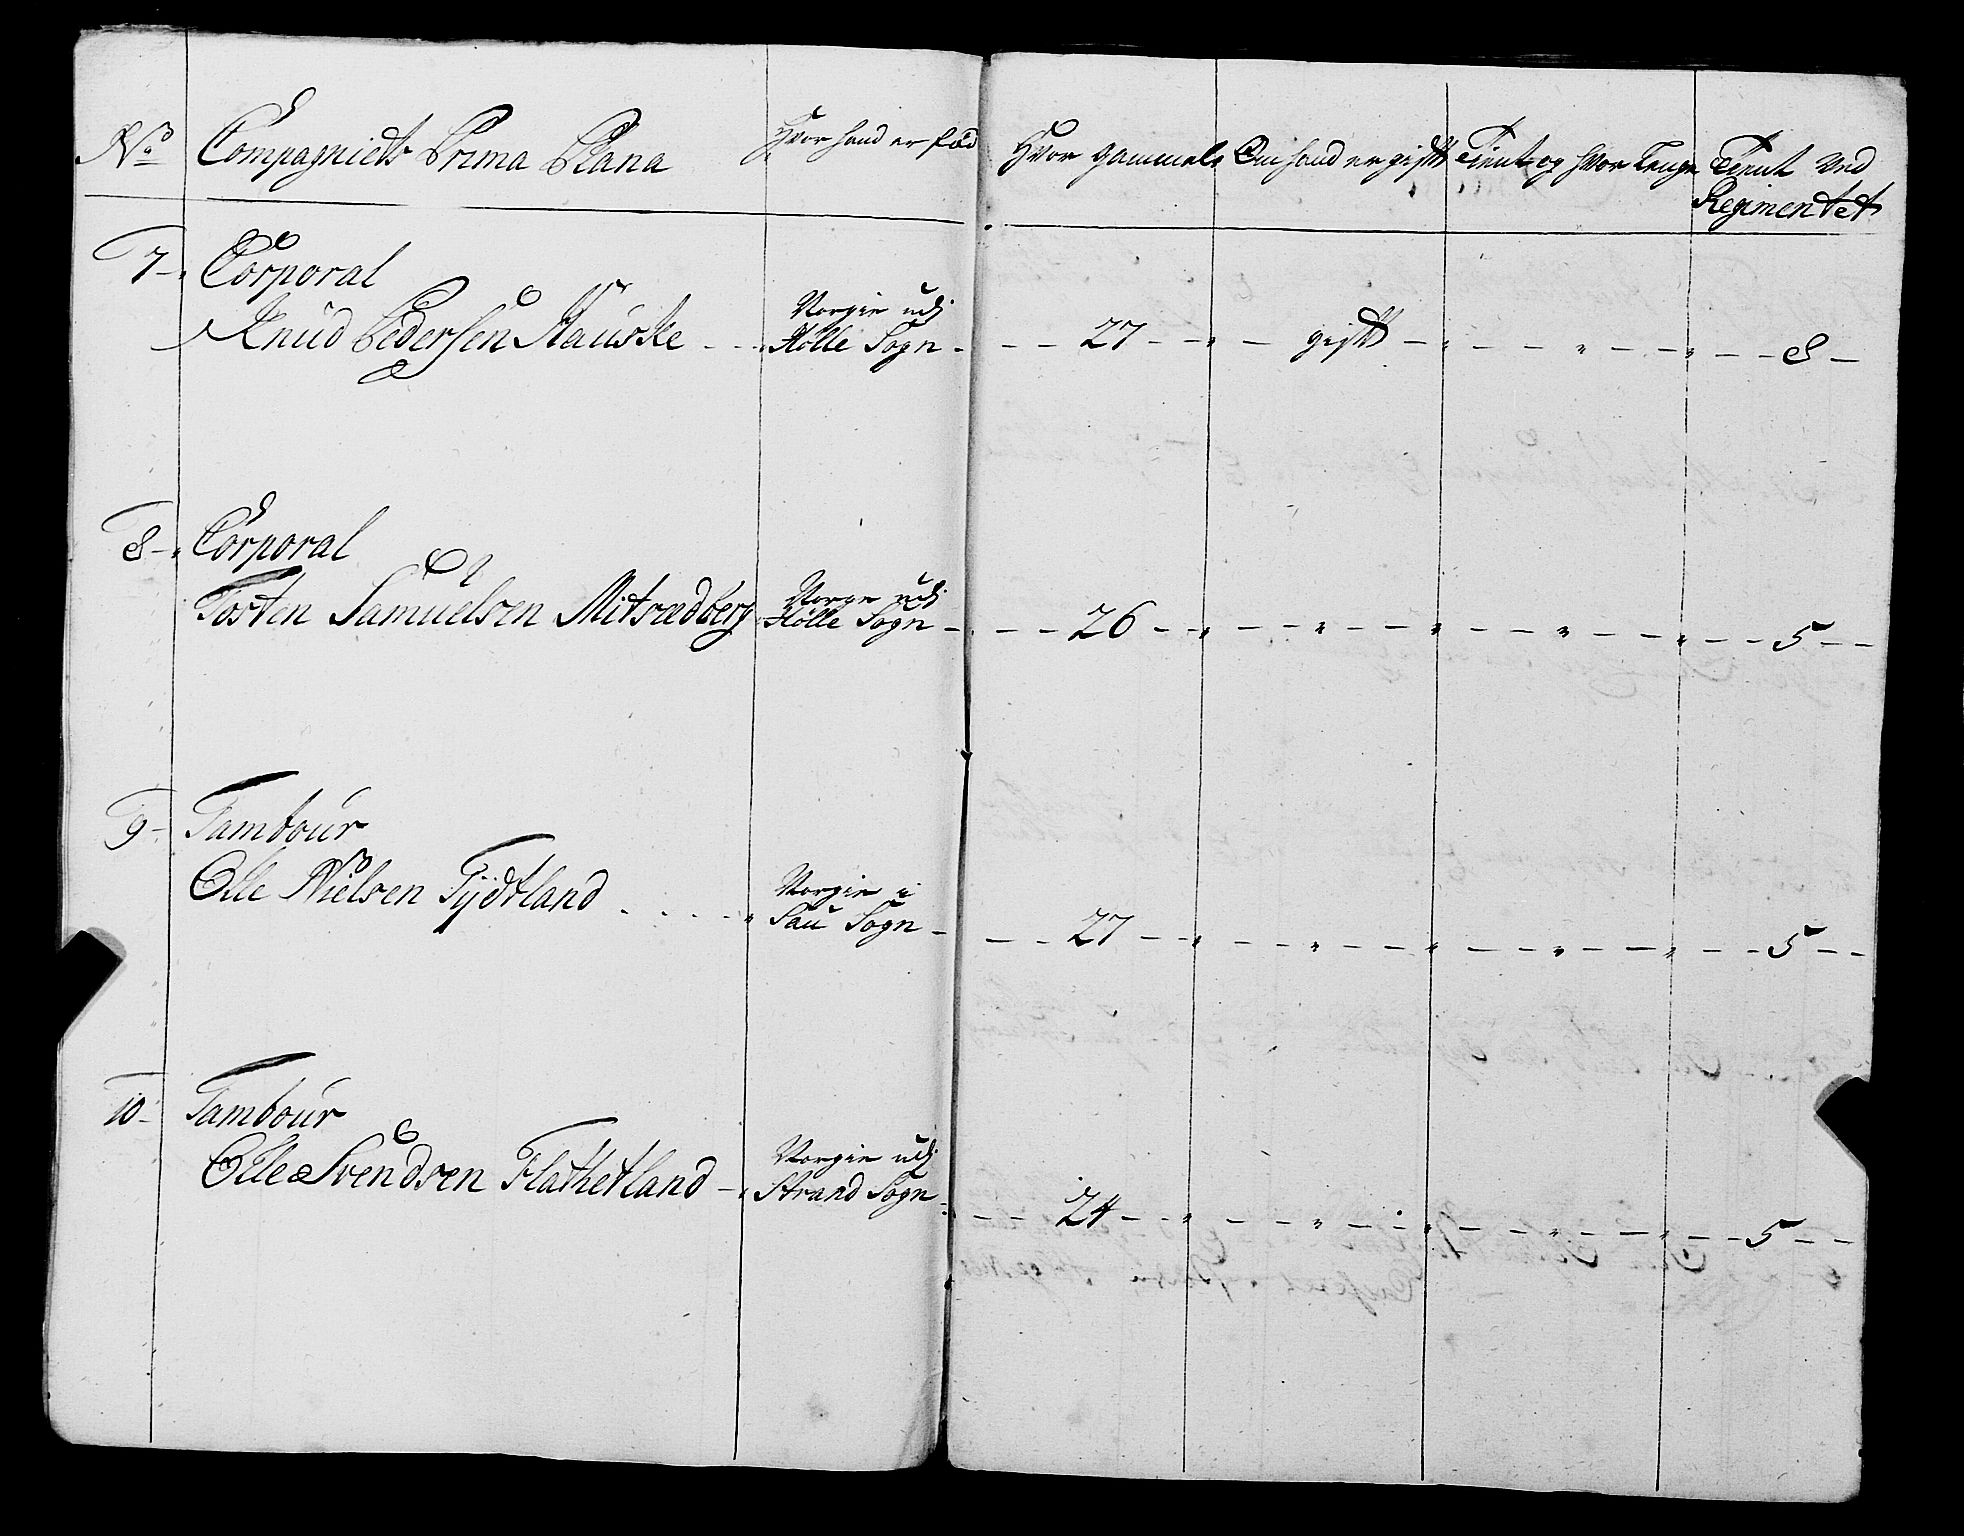 No Compagniets Prima Plana Hvor hand er fød Hvor gammel Om hand er gift Tient og hvor Lenge Tient Ved
Regimentet
7 Corporal
Knud Pedersen Hauske Norgie udj
Hølle Sogn 27 gift 8
8 Corporal
Torsten Samuelsen Mitrædberg Norge udj
Hølle Sogn 26 5
9 Tambour
Olle Nielsen Tÿdtland Norgie i
Sau Sogn 27 5
10 Tambour
Olle Svendsen Flathetland Norgie udj
Strand Sogn 24 5